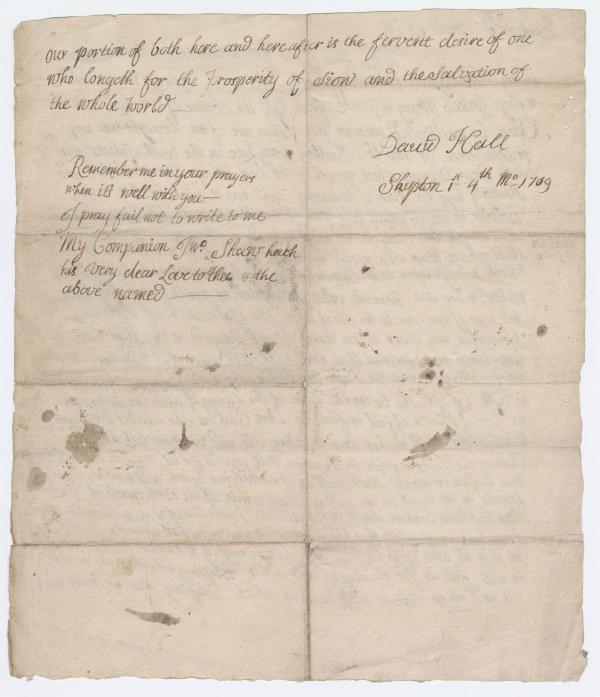 our portion of both here and hereafter is the fervent desire of one
who longeth for the Prosperity of Sion and the Salvation of
the whole World
David Hall
Skypton 1st 4th Mo 1709
Remember me in your prayers
when its well with you
I pray fail not to write to me
My Companion Jno. Shaw heath
his very dear Love to thee & the
above named